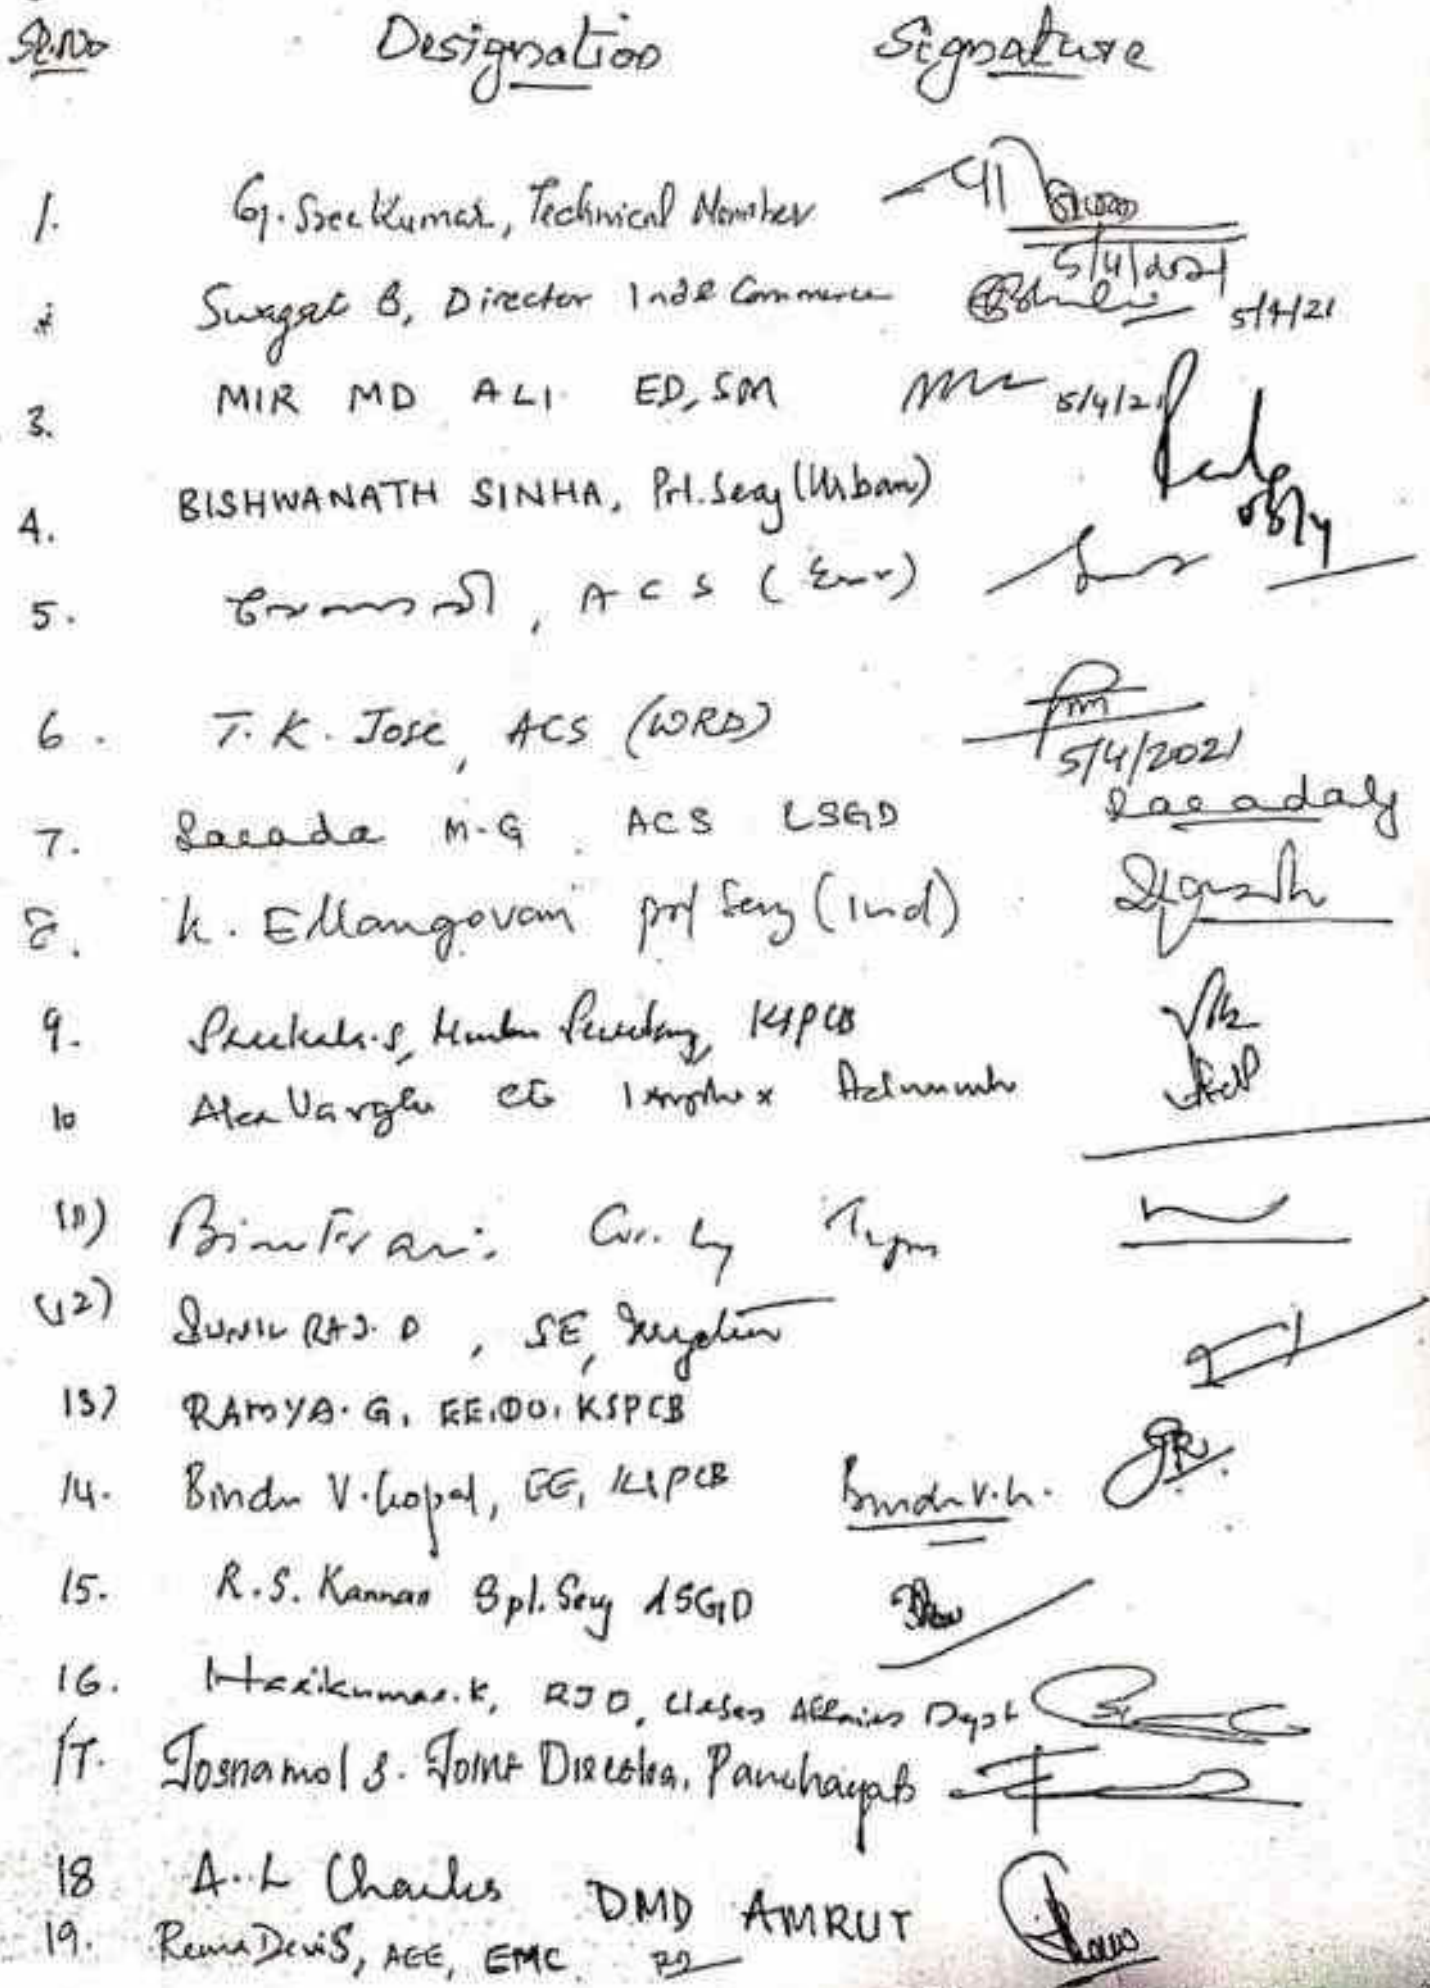 Sl.No Designation Signature
1. G. SreeKumar, Technical Member
5/4/2021
Swagat B, Director Ind & Commerce 5/4/21
3. MIR MD ALI ED, SM 5/4/21
4. BISHWANATH SINHA, Prl. Secy (Urban) 05/4
5. , ACS (Env)
6. T.K. Jose, ACS (WRD)
5/4/2021
7. Sarada M.G. ACS LSGD
8. K. Ellangovan prl Secy (Ind)
9. Sreekala.S, Member Secretary, KSPCB
10 Alex Varghese CE
11)
12) SUNIL RAJ. D, SE, Irrigation
13) RAMYA. G, EE, DO, KSPCB
14. Bindu V. Gopal, EE, KSPCB Bindu V.G.
15. R.S. Kannan Spl. Secy LSGD
16. Harikumar.K, RJD, Urban Affairs Dept
17. Josnamol S. Joint Director, Panchayats
18 A.L Charles DMD AMRUT
19. Rema Devi S, AEE, EMC